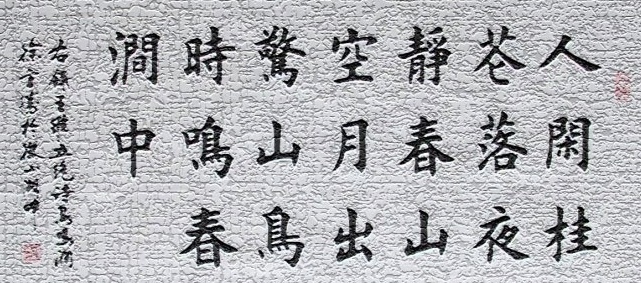 人閑桂
花落夜
靜春山
空月出
驚山鳥
時鳴春
澗中
右錄王維五絕詩鳥鳴澗